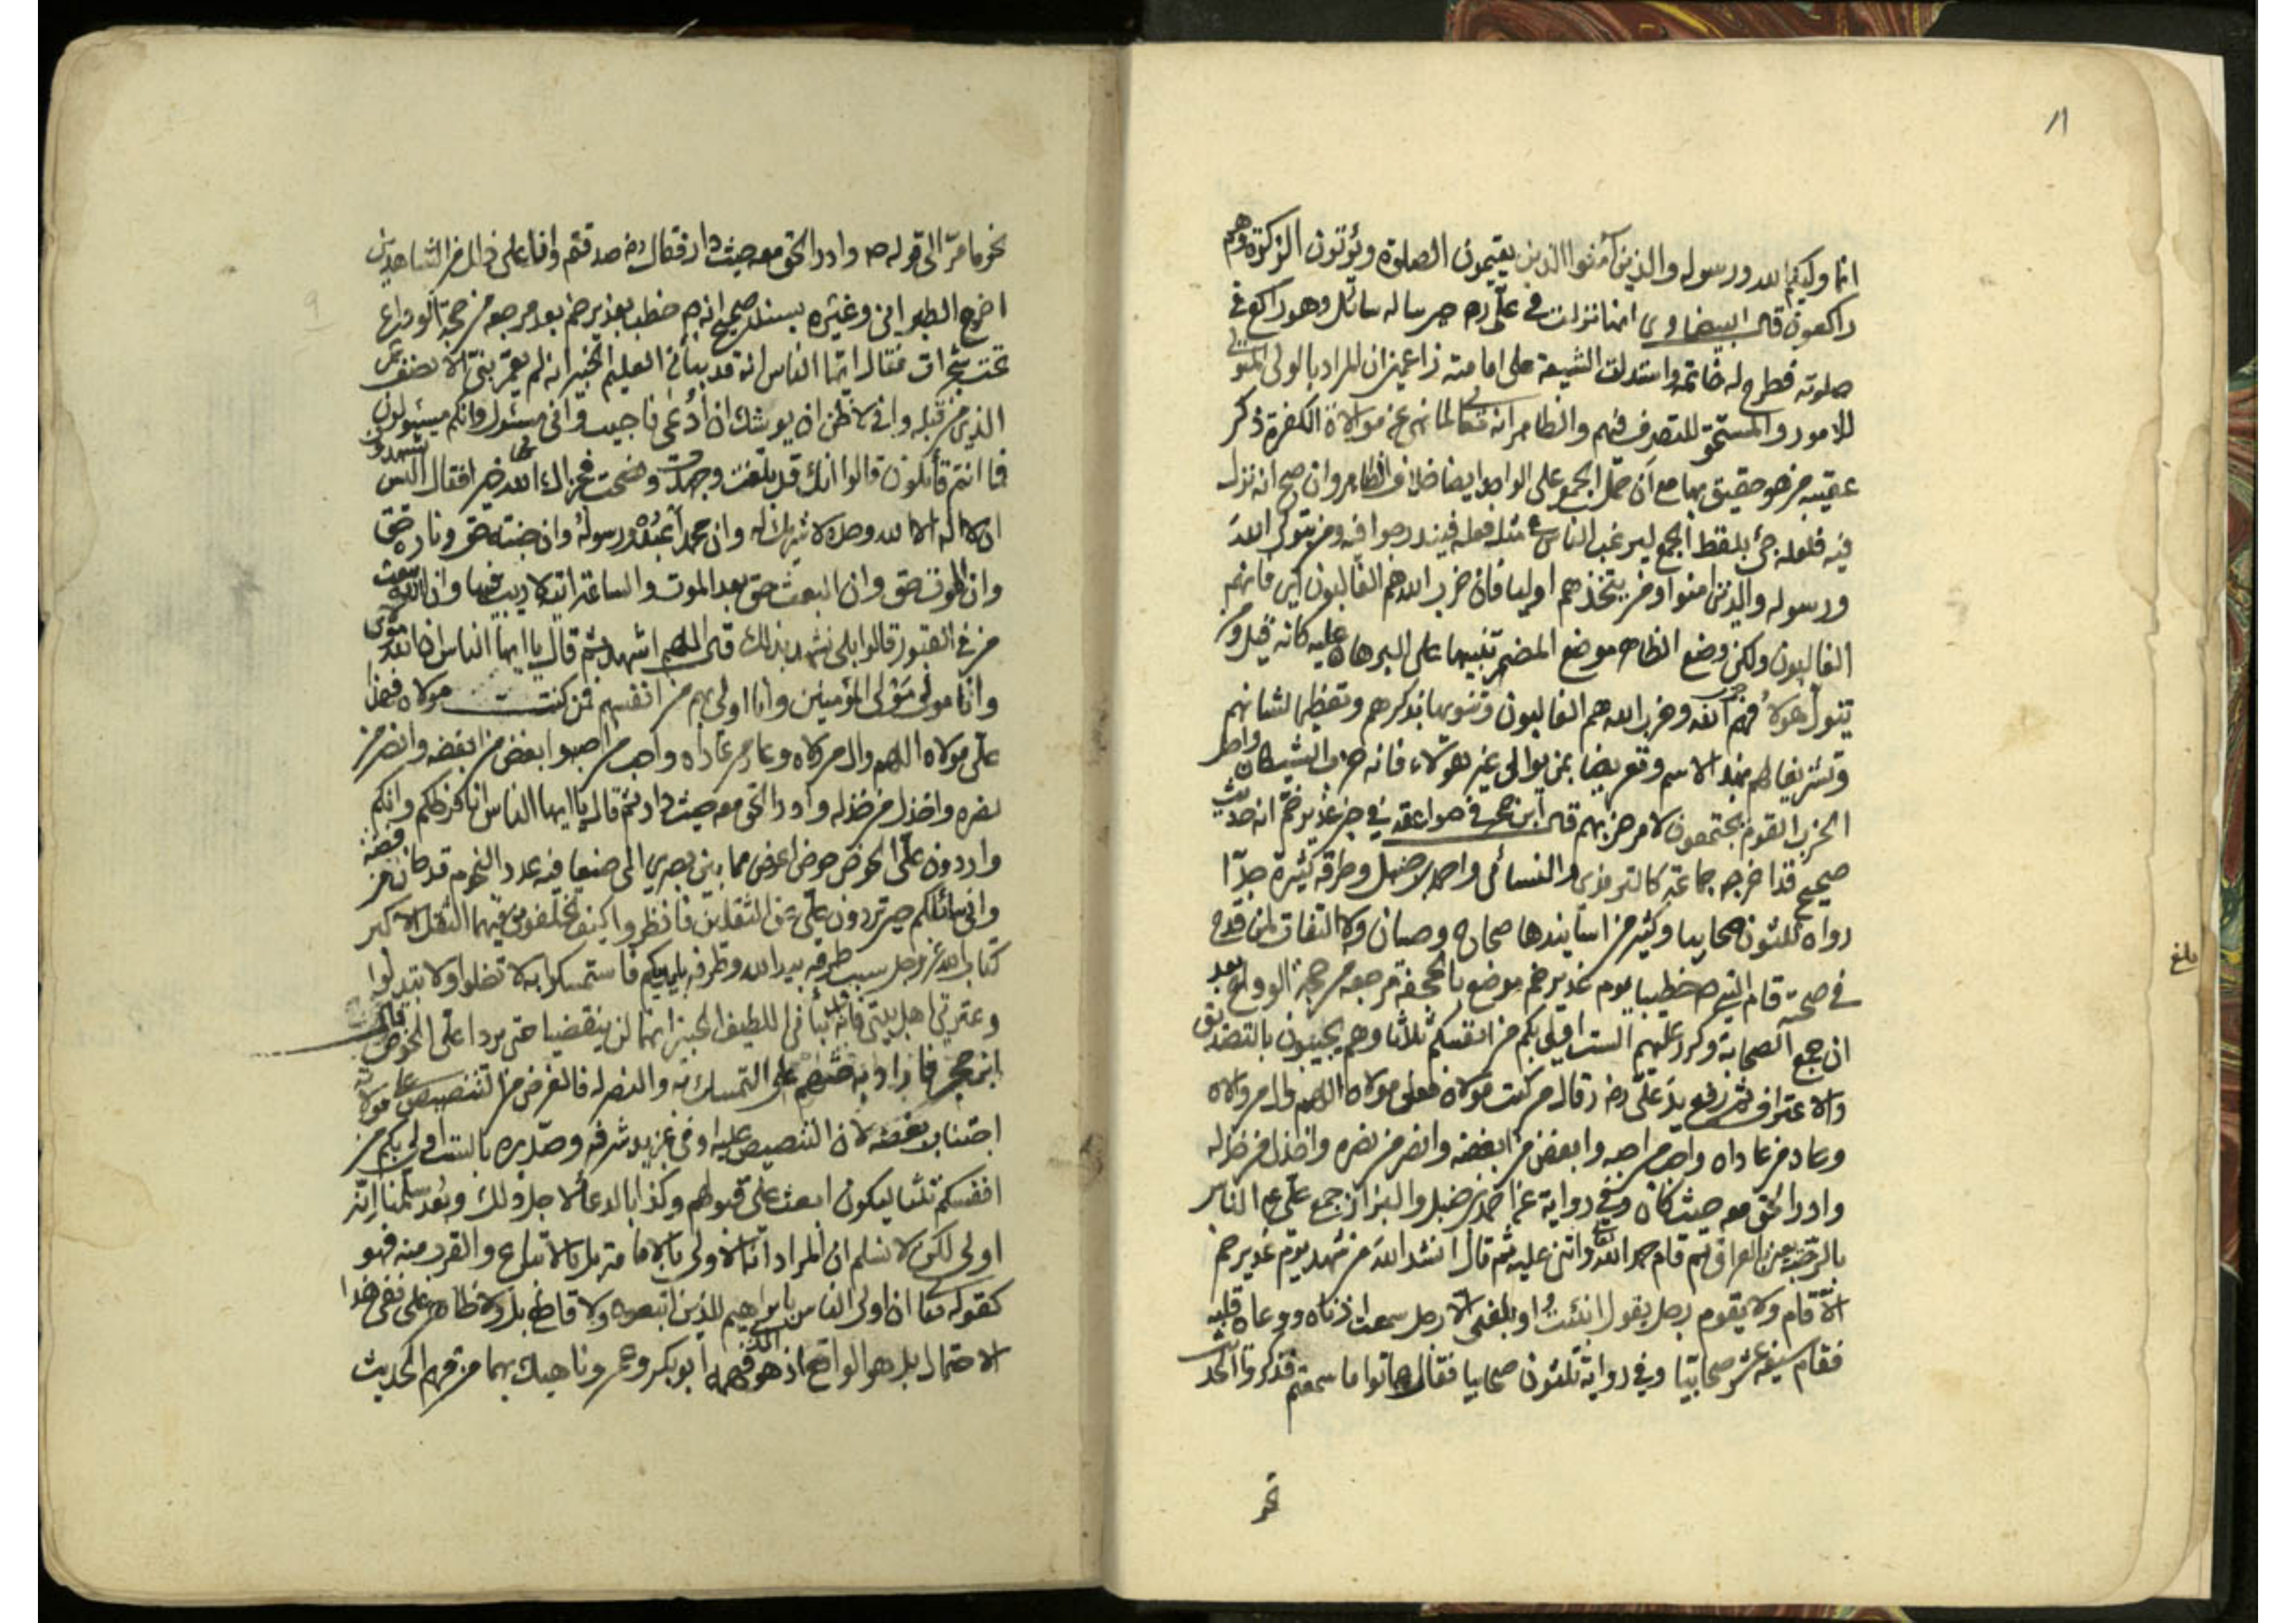 ١١
انما وليكم الله ورسوله والذين آمنوا الذين يقيمون الصلوة ويؤتون الزكوة وهم
راكعون قال البيضاوى انها نزلت في علي رض حين ساله سائل وهو راكع في
صلوته فطرح له خاتمه واستدلت الشيعة على امامته زاعمين ان المراد بالولى المتولى
للامور والمستحق للتصرف فيهم والظاهر انه تعالى لما نهى عن موالاة الكفرة ذكر
عقيبه من هو حقيق بها مع ان حمل الجمع على الواحد ايضا خلاف الظاهر وان صح انه نزل
فيه فلعله جئ بلفظ الجمع ليرغب الناس في مثل فعله فيندرجوا فيه ومن يتول الله
ورسوله والذين امنوا ومن يتخذهم اوليا فان حزب الله هم الغالبون اى فانهم
الغالبون ولكن وضع الظاهر موضع المضمر تنبيها على البرهان عليه كانه قيل ومن
يتول هؤلاء فهم حزب الله وحزب الله هم الغالبون وتنويها بذكرهم وتعظيما لشانهم
وتشريفا لهم بهذا الاسم وتعريضا بمن يوالى غير هؤلاء فانه حزب الشيطان واصل
الحزب القوم يجتمعون لامر حزبهم قال ابن حجر في صواعقه في خبر غدير خم انه حديث
صحيح قد اخرجه جماعة كالترمذى والنسائى واحمد بن حنبل وطرقه كثيرة جدا
رواه ثلثون صحابيا وكثير من اسانيدها صحاح وحسان ولا التفات لمن قدح
في صحته قام النبي ص خطيبا يوم غدير خم موضع بالجحفة مرجعه من حجة الوداع بعد
ان جمع الصحابة وكرر عليهم الست اولى بكم من انفسكم ثلاثا وهم يجيبون بالتصديق
والاعتراف ثم رفع يد علي رض وقال من كنت مولاه فعلى مولاه اللهم وال من والاه
وعاد من عاداه واحب من احبه وابغض من ابغضه وانصر من نصره واخذل من خذله
وادر الحق معه حيث كان وفي رواية عن احمد بن حنبل والبزار جمع علي الناس
بالرحبة يعنى العراق ثم قام فحمد الله واثنى عليه ثم قال انشد الله من شهد يوم غدير خم
الا قام ولا يقوم رجل يقول انبئت او بلغنى الا رجل سمعت اذناه ووعاه قلبه
فقام سبعة عشر صحابيا وفي رواية ثلثون صحابيا فقال هاتوا ما سمعتم فذكروا الحديث
نحو
بلغ
نحو ما مر الى قوله ص وادر الحق معه حيث دار فقال رض صدقتم وانا على ذلك من الشاهدين
٩
اخرج الطبراني وغيره بسند صحيح انه ص خطب بغدير خم بعد مرجعه من حجة الوداع
تحت شجرات فقال ايها الناس انه قد نبأنى العليم الخبير انه لم يعمر نبى الا نصف عمر
الذى من قبله وانى لاظن ان يوشك ان ادعى فاجيب وانى مسئول وانكم مسئولون
فما انتم قائلون قالوا انك قد بلغت وجهدت ونصحت فجزاك الله خيرا فقال اليس تشهدون
ان لا اله الا الله وحده لا شريك له وان محمدا عبده ورسوله وان جنته حق وناره حق
وان الموت حق وان البعث حق بعد الموت والساعة اتية لا ريب فيها وان الله يبعث
من في القبور قالوا بلى نشهد بذلك قال اللهم اشهد ثم قال يا ايها الناس ان الله مولاى
وانا مولى المؤمنين وانا اولى بهم من انفسهم فمن كنت مولاه فهذا
على مولاه اللهم وال من والاه وعاد من عاداه واحب من احبه وابغض من ابغضه وانصر من
نصره واخذل من خذله وادر الحق معه حيث دار ثم قال يا ايها الناس انا فرطكم وانكم
واردون علي الحوض حوض اعرض مما بين بصرى الى صنعا فيه عدد النجوم قدحان من فضة
وانى سائلكم حين تردون علي عن الثقلين فانظروا كيف تخلفونى فيهما الثقل الاكبر
كتاب الله عز وجل سبب طرفه بيد الله وطرفه بايديكم فاستمسكوا به لا تضلوا ولا تبدلوا
وعترتى اهل بيتى فانه نبأنى اللطيف الخبير انهما لن ينقضيا حتى يردا على الحوض قال
ابن حجر فاراد به حثهم على التمسك به والنصر له فالغرض من التنصيص على مولاه
اجتناب بغضه لان التنصيص عليه اوفى بمزيد شرفه وصدره بالست اولى بكم من
انفسكم ثلثا ليكون ابعث على قبولهم وكذا بالدعاء لاجل ذلك وبعد سلمنا انه
اولى لكن لا نسلم ان المراد انه الاولى بالامامة بل بالاتباع والقرب منه فهو
كقوله تعالى ان اولى الناس بابراهيم للذين اتبعوه ولا قاطع بل ولا ظاهر على نفى هذا
الاحتمال بل هو الواقع اذ هو الذى فهمه ابوبكر وعمر وناهيك بهما من فهم الحديث